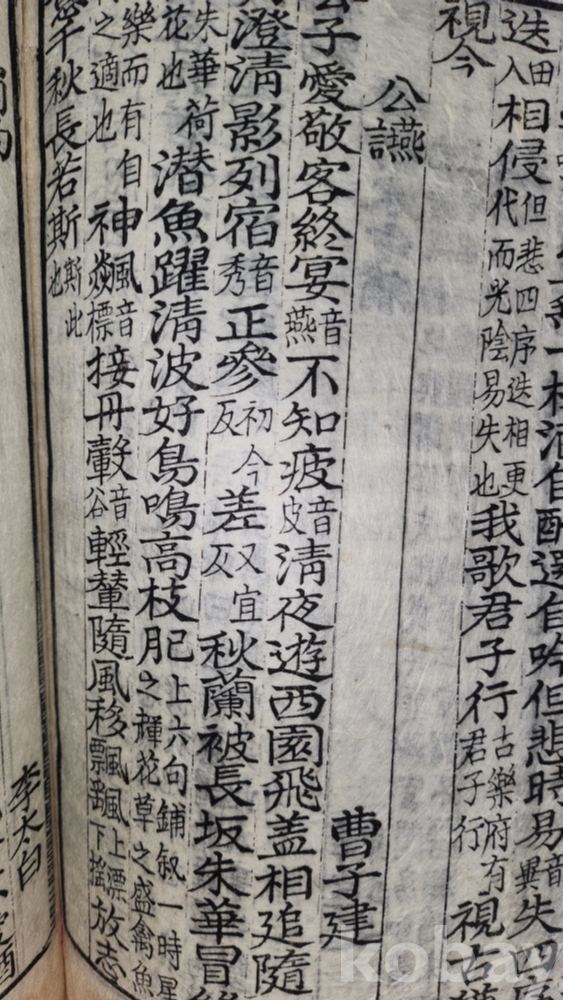 一杯酒自酌還自吟但悲時易音異失四序
迭田入相侵但悲四序迭相更代而光陰易失也我歌君子行古樂府有君子行視古
視今
公讌
曹子建
公子愛敬客終宴音燕不知疲音皮清夜遊西園飛盖相追隨
澄清影列宿音秀正參初今反差又宜反秋蘭被長坂朱華冒
朱華荷花也潜魚躍清波好鳥鳴高枝上六句鋪叙一時星之輝花草之盛禽魚
樂而有自之適也神飇音標接丹轂音谷輕輦隨風移上漂下搖放志
意千秋長若斯斯此也
李太白
kobay